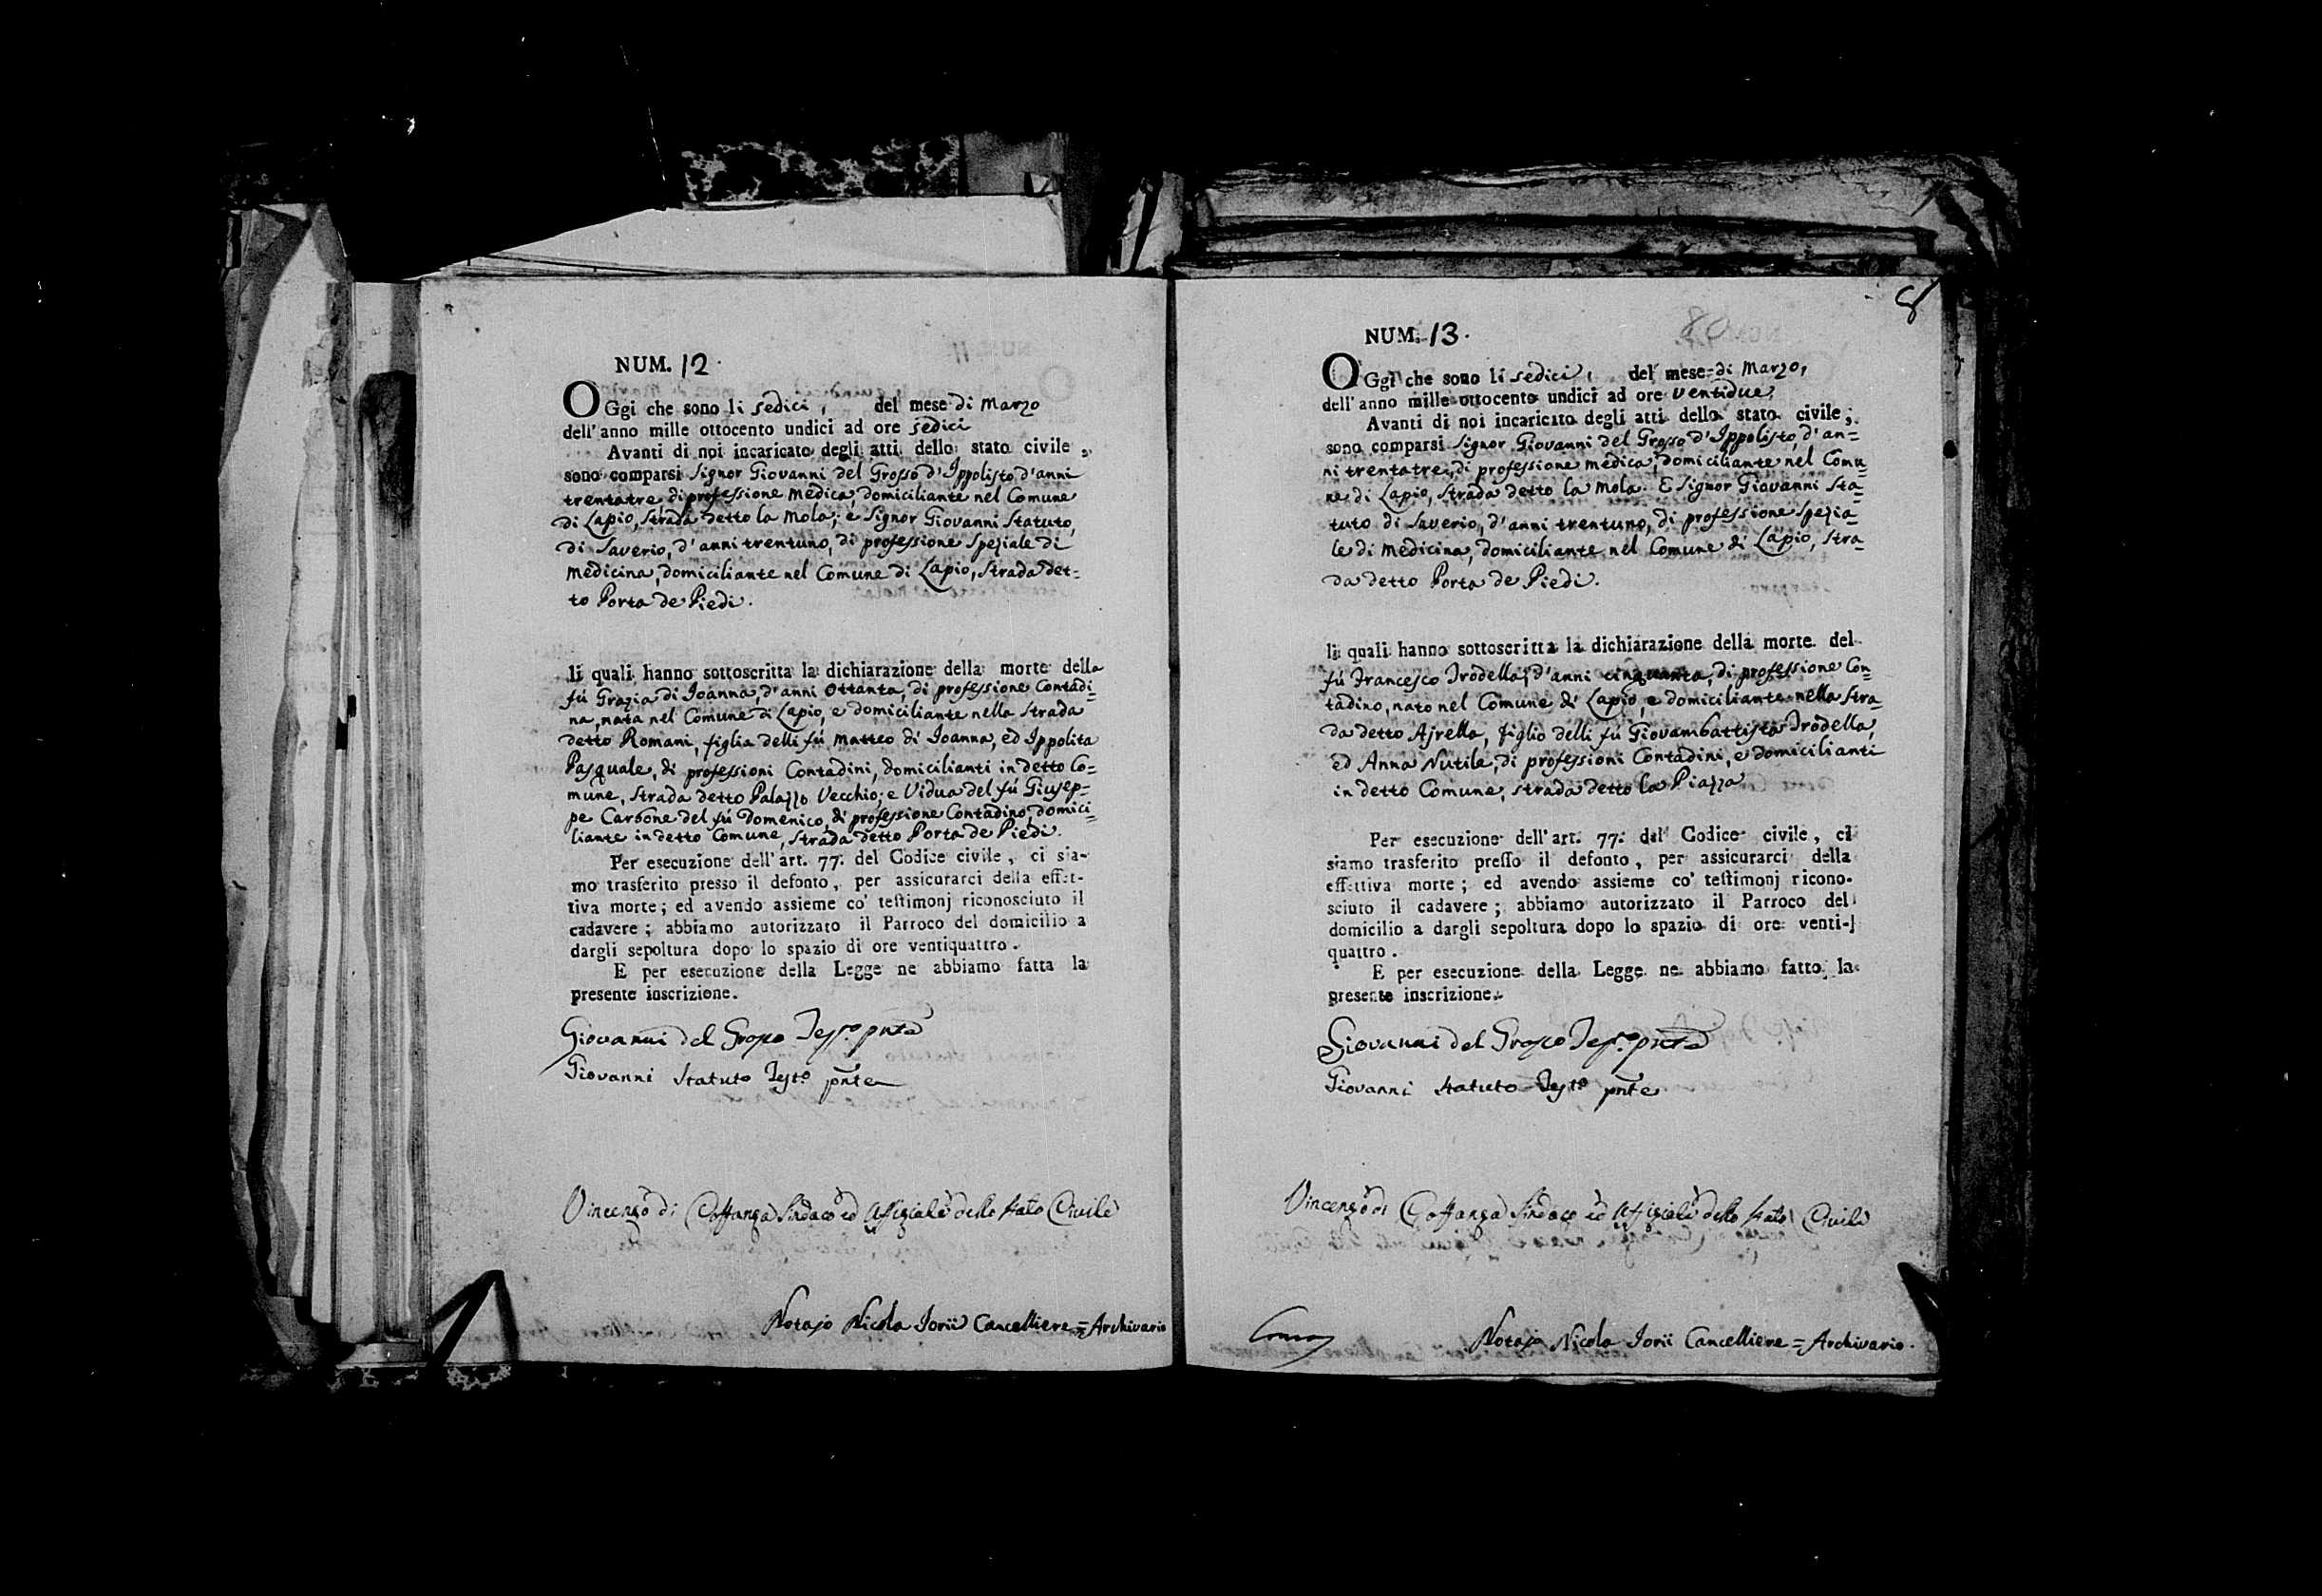 NUM. 12.
OGgi che sono li sedici, del mese di Marzo
dell'anno mille ottocento undici ad ore sedici
Avanti di noi incaricato degli atti dello stato civile,
sono comparsi Signor Giovanni del Grosso d'Ippolisto, d'anni
trentatre, di professione Medica, domiciliante nel Comune
di Lapio, Strada detto la Mola; e Signor Giovanni Statuto,
di Saverio, d'anni trentuno, di professione Speziale di
Medicina, domiciliante nel Comune di Lapio, Strada det=
to Porta de Piedi.
li quali hanno sottoscritta la dichiarazione della morte della
fú Grazia di Joanna, d'anni Ottanta, di professione Contadi=
na, nata nel Comune di Lapio, e domiciliante nella Strada
detto Romani, figlia delli fú Matteo di Joanna, ed Ippolita
Pasquale, di professioni Contadini, domicilianti in detto Co=
mune, Strada detto Palazzo Vecchio; e Vidua del fú Giusep=
pe Carbone del fú Domenico, di professione Contadino, domici=
liante in detto Comune, Strada detto Porta de Piedi.
Per esecuzione dell'art. 77. del Codice civile, ci sia-
mo trasferito presso il defonto, per assicurarci della effet-
tiva morte; ed avendo assieme co' testimonj riconosciuto il
cadavere; abbiamo autorizzato il Parroco del domicilio a
dargli sepoltura dopo lo spazio di ore ventiquattro.
E per esecuzione della Legge ne abbiamo fatta la
presente inscrizione.
Giovanni del Grosso Tess.o pnte
Giovanni Statuto Test.o pnte
Vincenzo di Coffanza Sindaco ed Uffiziale dello Stato Civile
Notajo Nicola Iorii Cancelliere = Archivario
8
NUM. 13.
OGgi che sono li sedici, del mese di Marzo,
dell'anno mille ottocento undici ad ore Ventidue,
Avanti di noi incaricato degli atti dello stato civile,
sono comparsi Signor Giovanni del Grosso d'Ippolisto, d'an=
ni trentatre, di professione Medica, domiciliante nel Comu=
ne di Lapio, Strada detto la Mola. E Signor Giovanni Sta=
tuto di Saverio, d'anni trentuno, di professione Spezia=
le di Medicina, domiciliante nel Comune di Lapio, Stra=
da detto Porta de Piedi.
li quali hanno sottoscritta la dichiarazione della morte del
fú Francesco Trodella, d'anni cinquanta, di professione Con=
tadino, nato nel Comune di Lapio, e domiciliante nella Stra=
da detto Ajrella, figlio delli fú Giovambattista Trodella,
ed Anna Nutile, di professioni Contadini, e domicilianti
in detto Comune, Strada detto la Piazza
Per esecuzione dell'art. 77. del Codice civile, ci
siamo trasferito presso il defonto, per assicurarci della
effettiva morte; ed avendo assieme co' testimonj ricono-
sciuto il cadavere; abbiamo autorizzato il Parroco del
domicilio a dargli sepoltura dopo lo spazio di ore venti-
quattro.
E per esecuzione della Legge ne abbiamo fatto la
presente inscrizione.
Giovanni del Grosso Tes.o pnte
Giovanni Statuto Test.o pnte
Vincenzo di Coffanza Sindaco ed Uffiziale dello Stato Civile
Notajo Nicola Iorii Cancelliere = Archivario.